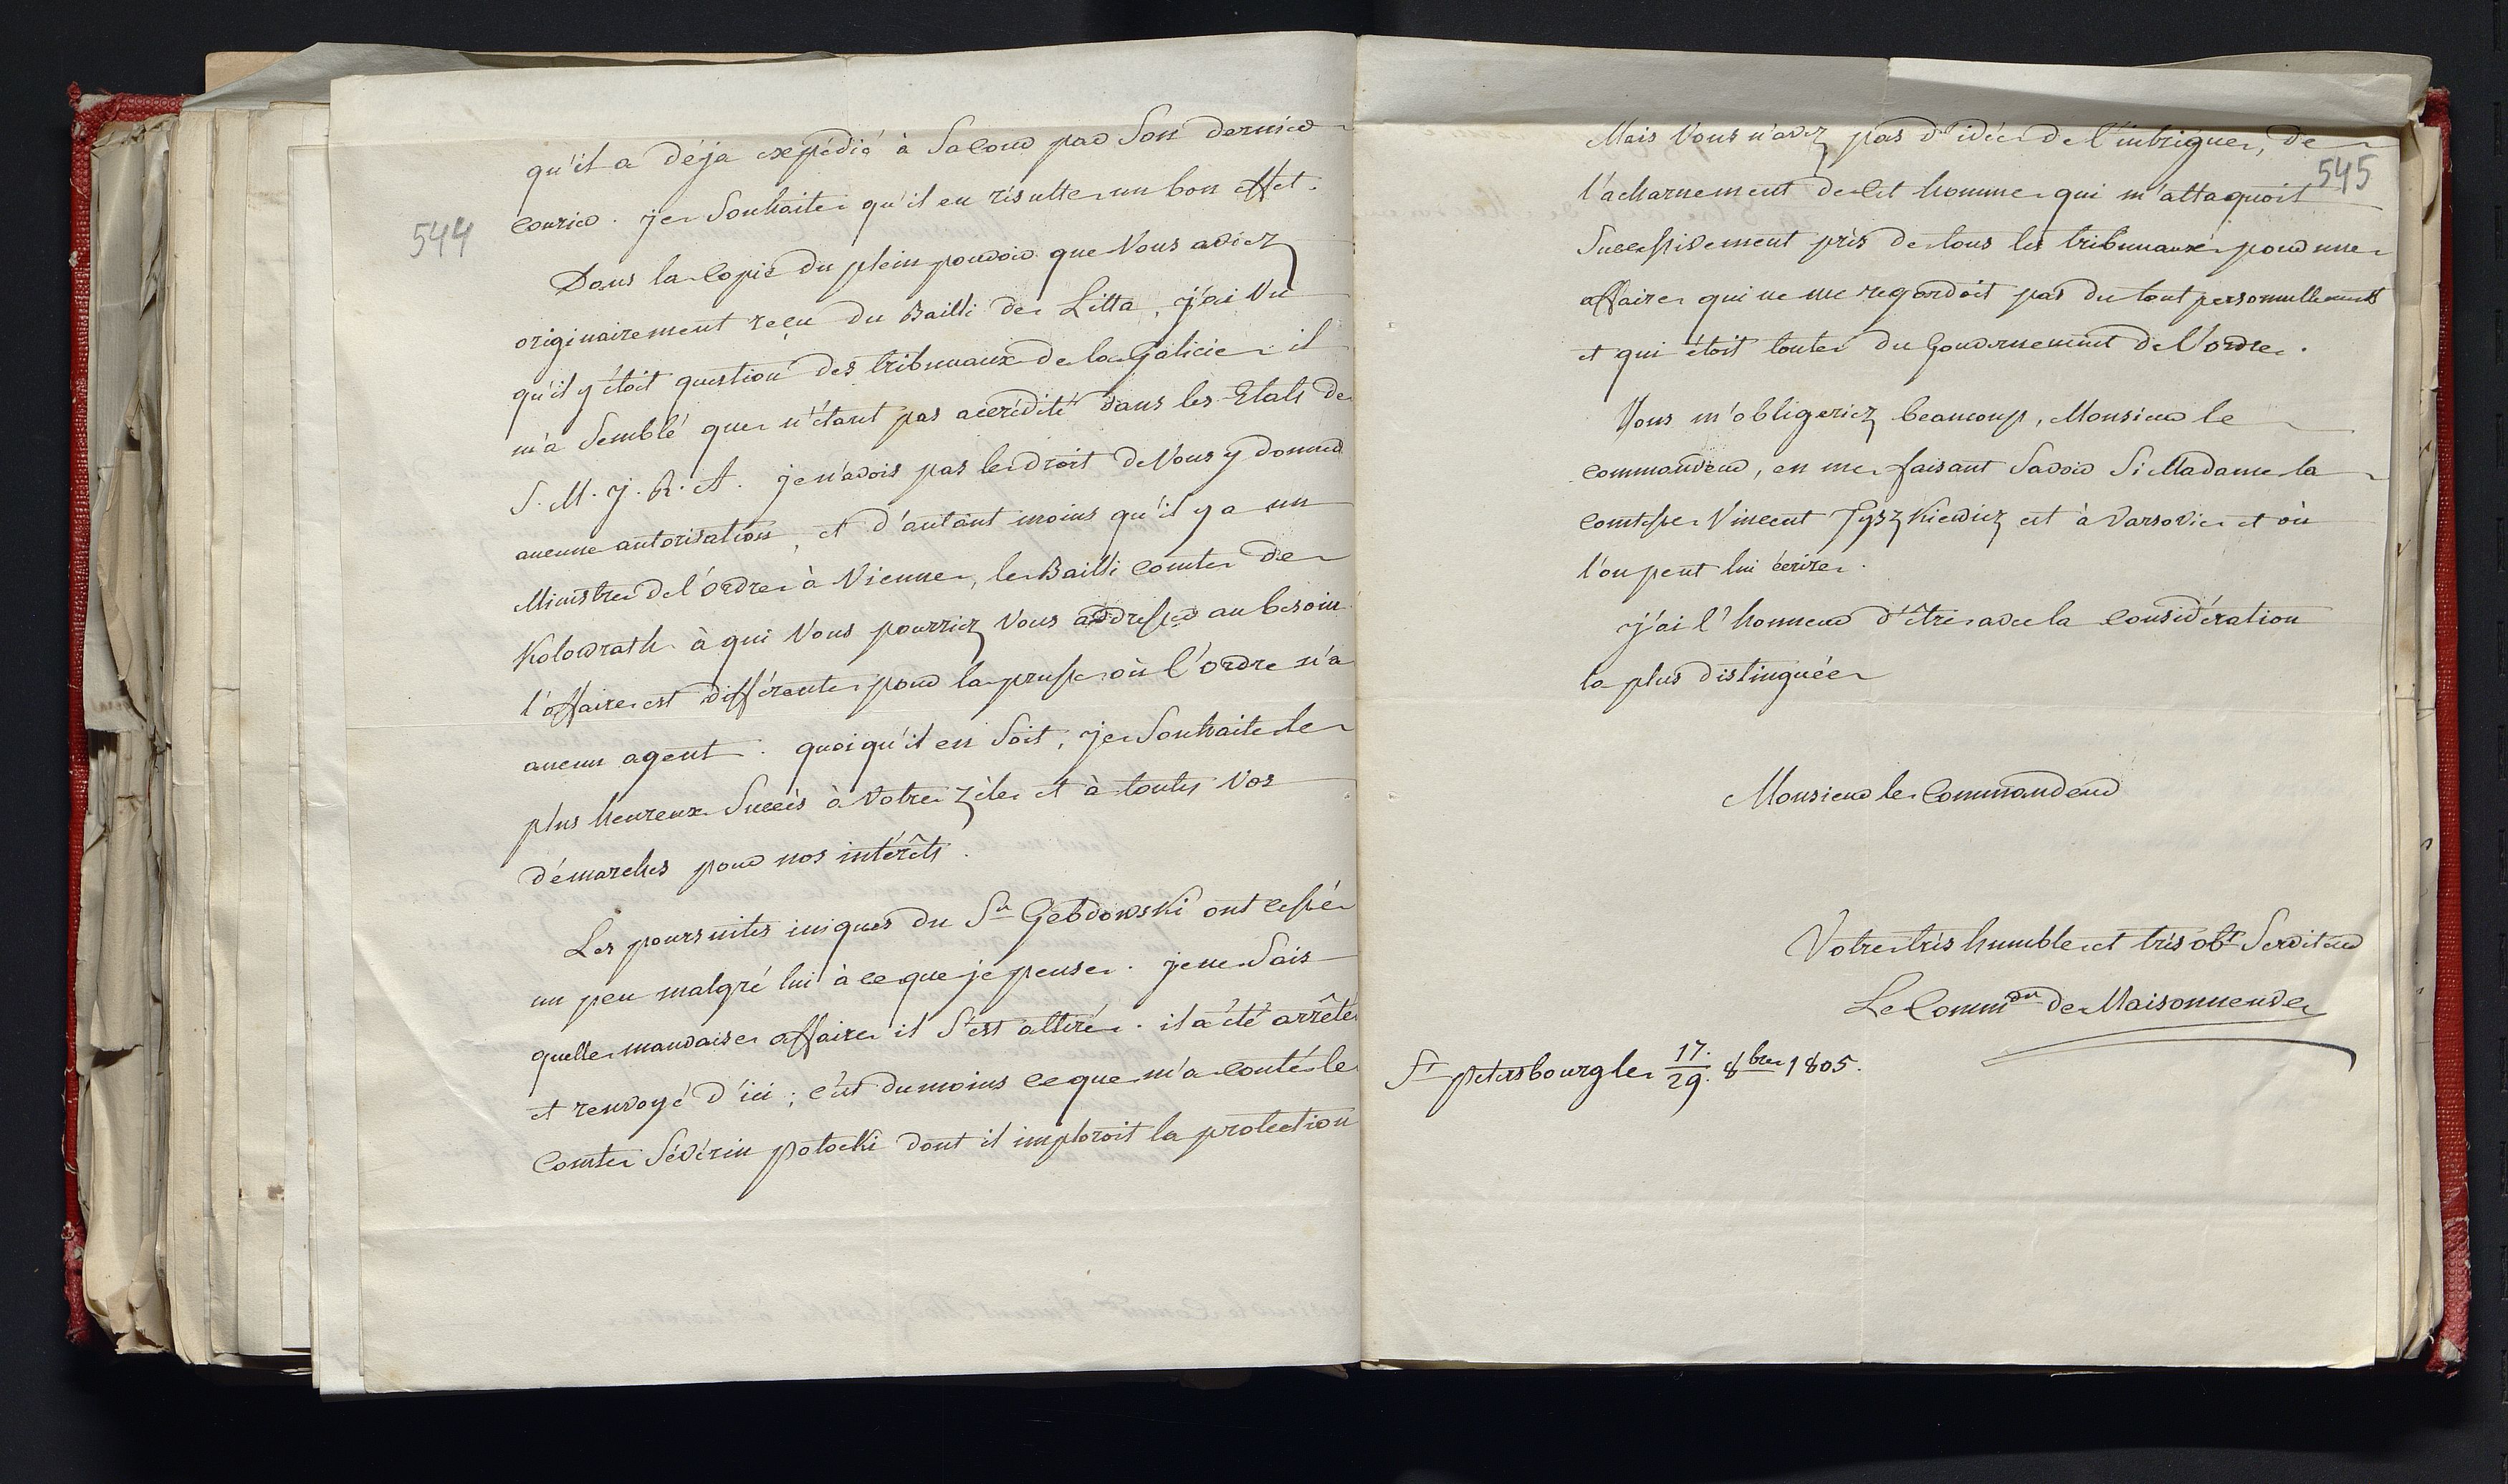 qu'il a déja expédié à Sa Cour par Son dernier
courier. je Souhaite qu'il en résulte un bon effet.
544
Dans la Copie du plein pouvoir que Vous aviez
originairement reçu du Bailli de Litta, j'ai Vu
qu'il y étoit question des tribunaux de la Galicie il
m'a Semblé que n'étant pas accrédité dans les Etats de
S. M. J. R. A. je n'avois pas le droit de Vous y donner
aucune autorisation, et d'autant moins qu'il y a un
Ministre de l'Ordre à Vienne, le Bailli Comte de
Kolowrath à qui Vous pourriez Vous addresser au besoin
l'affaire est différente pour la prusse où l'Ordre n'a
aucun agent. quoiqu'il en Soit, je Souhaite le
plus heureux Succès à Votre zèle et à toutes Vos
démarches pour nos intérêts.
Les poursuites iniques du Sr Gebdowski ont cessé
un peu malgré lui à ce que je pense. je ne Sais
quelle mauvaise affaire il S'est attiré. il a été arrêté
et renvoyé d'ici; c'est du moins ce que m'a conté le
Comte Sévérin potocki dont il imploroit la protection
Mais Vous n'avez pas d'idée de l'intrigue, de
545
l'acharnement de Cet homme qui m'attaquoit
Successivement près de tous les tribunaux pour une
affaire qui ne me regardoit pas du tout personnellement
et qui étoit toute du Gouvernement de l'Ordre.
Vous m'obligeriez beaucoup, Monsieur le
commandeur, en me faisant Savoir Si Madame la
comtesse Vincent Tyszkiewicz est à Varsovie et où
l'on peut lui écrire.
j'ai l'honneur d'être avec la Considération
la plus distinguée
Monsieur le Commandeur
Votre très humble et très obt Serviteur
Le Commdr de Maisonneuve
St petersbourg le 17./29. 8bre 1805.